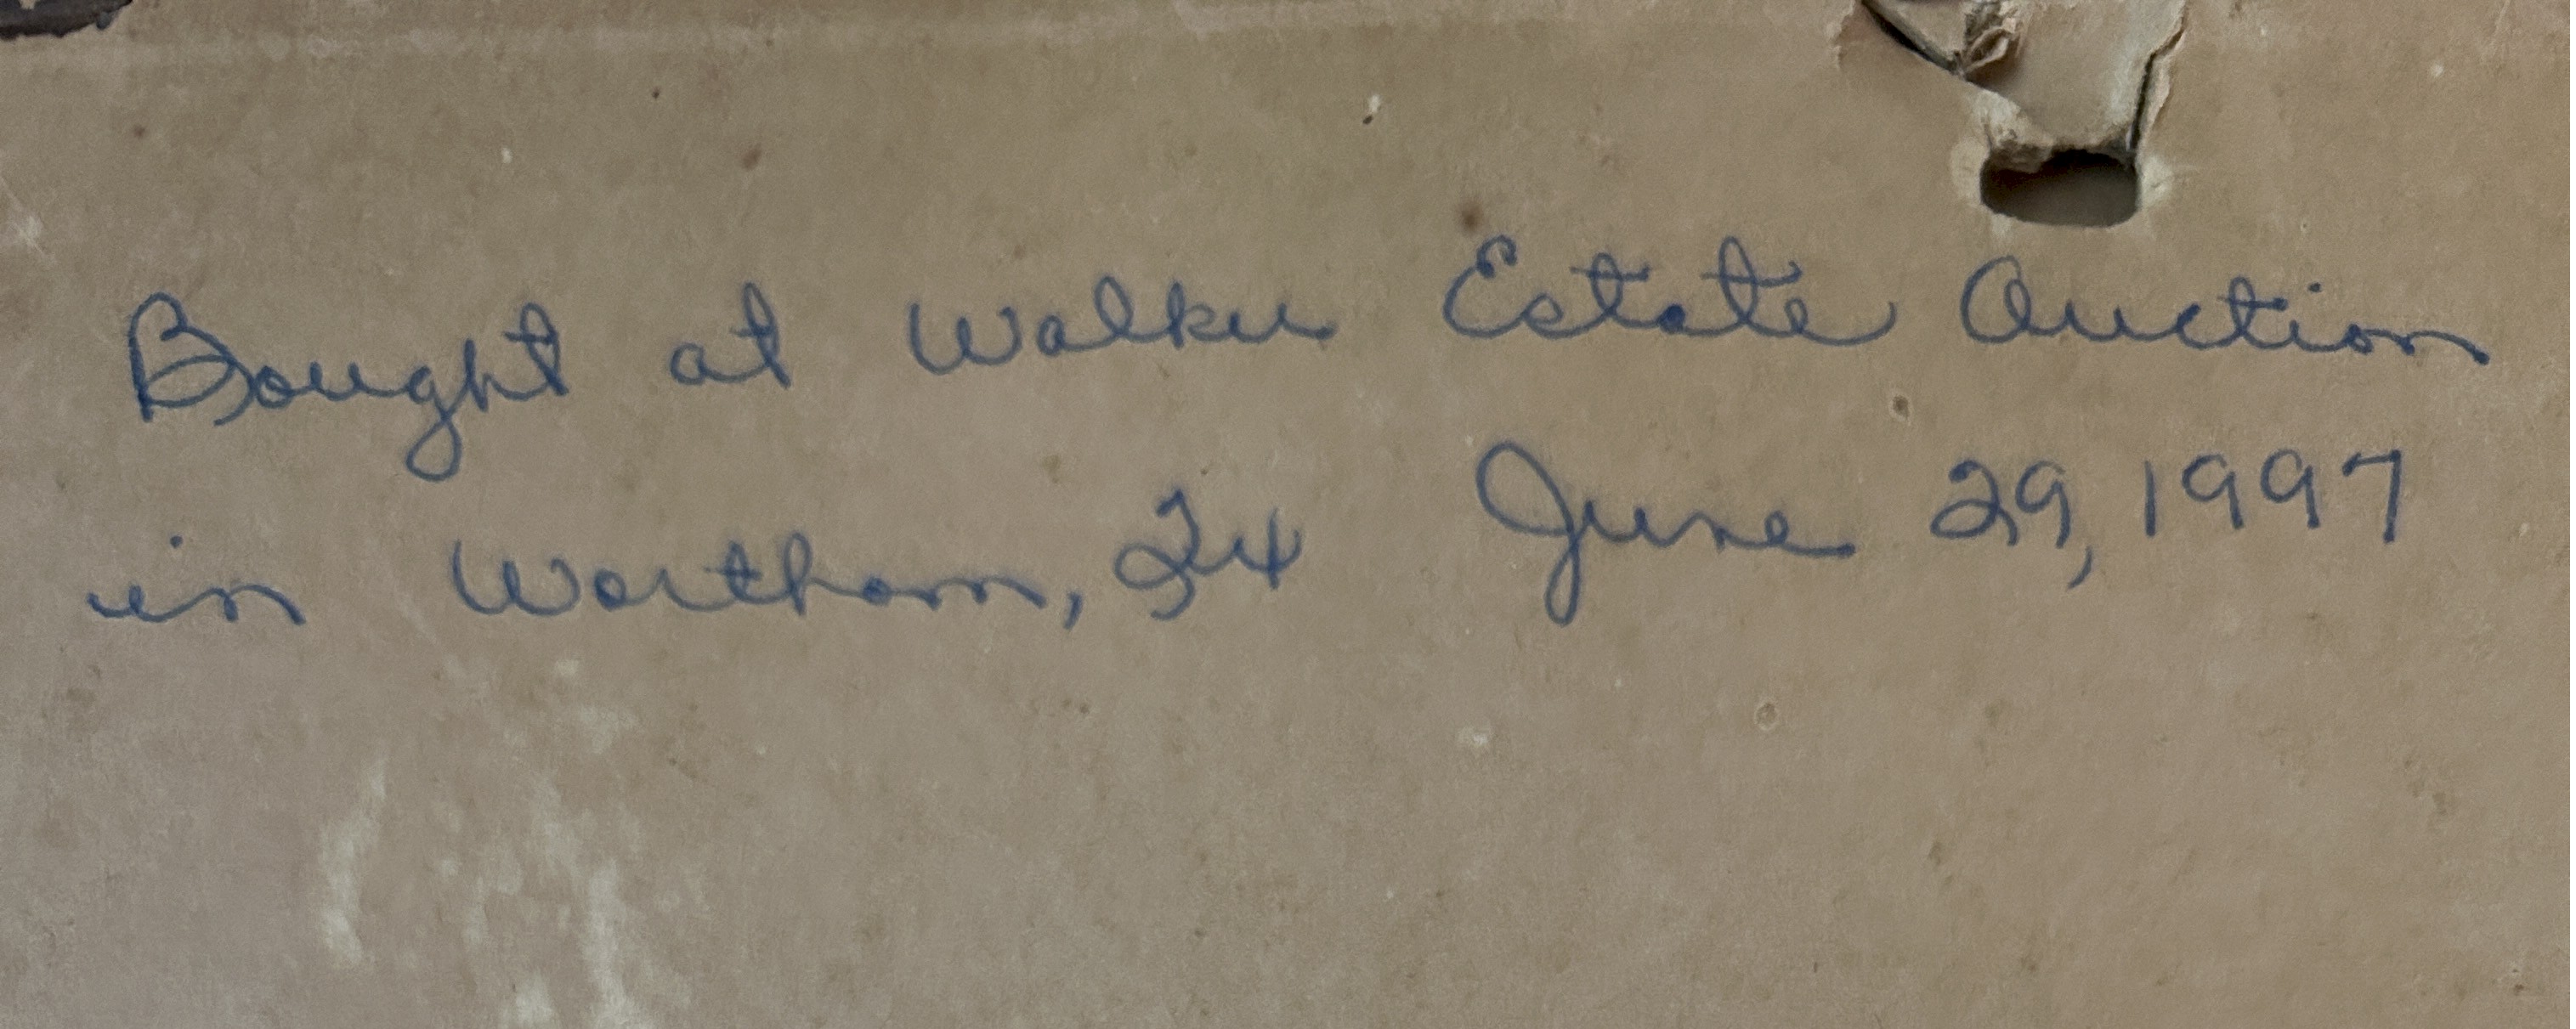 Bought at Walker Estate Auction
in Wortham, Tx June 29, 1997